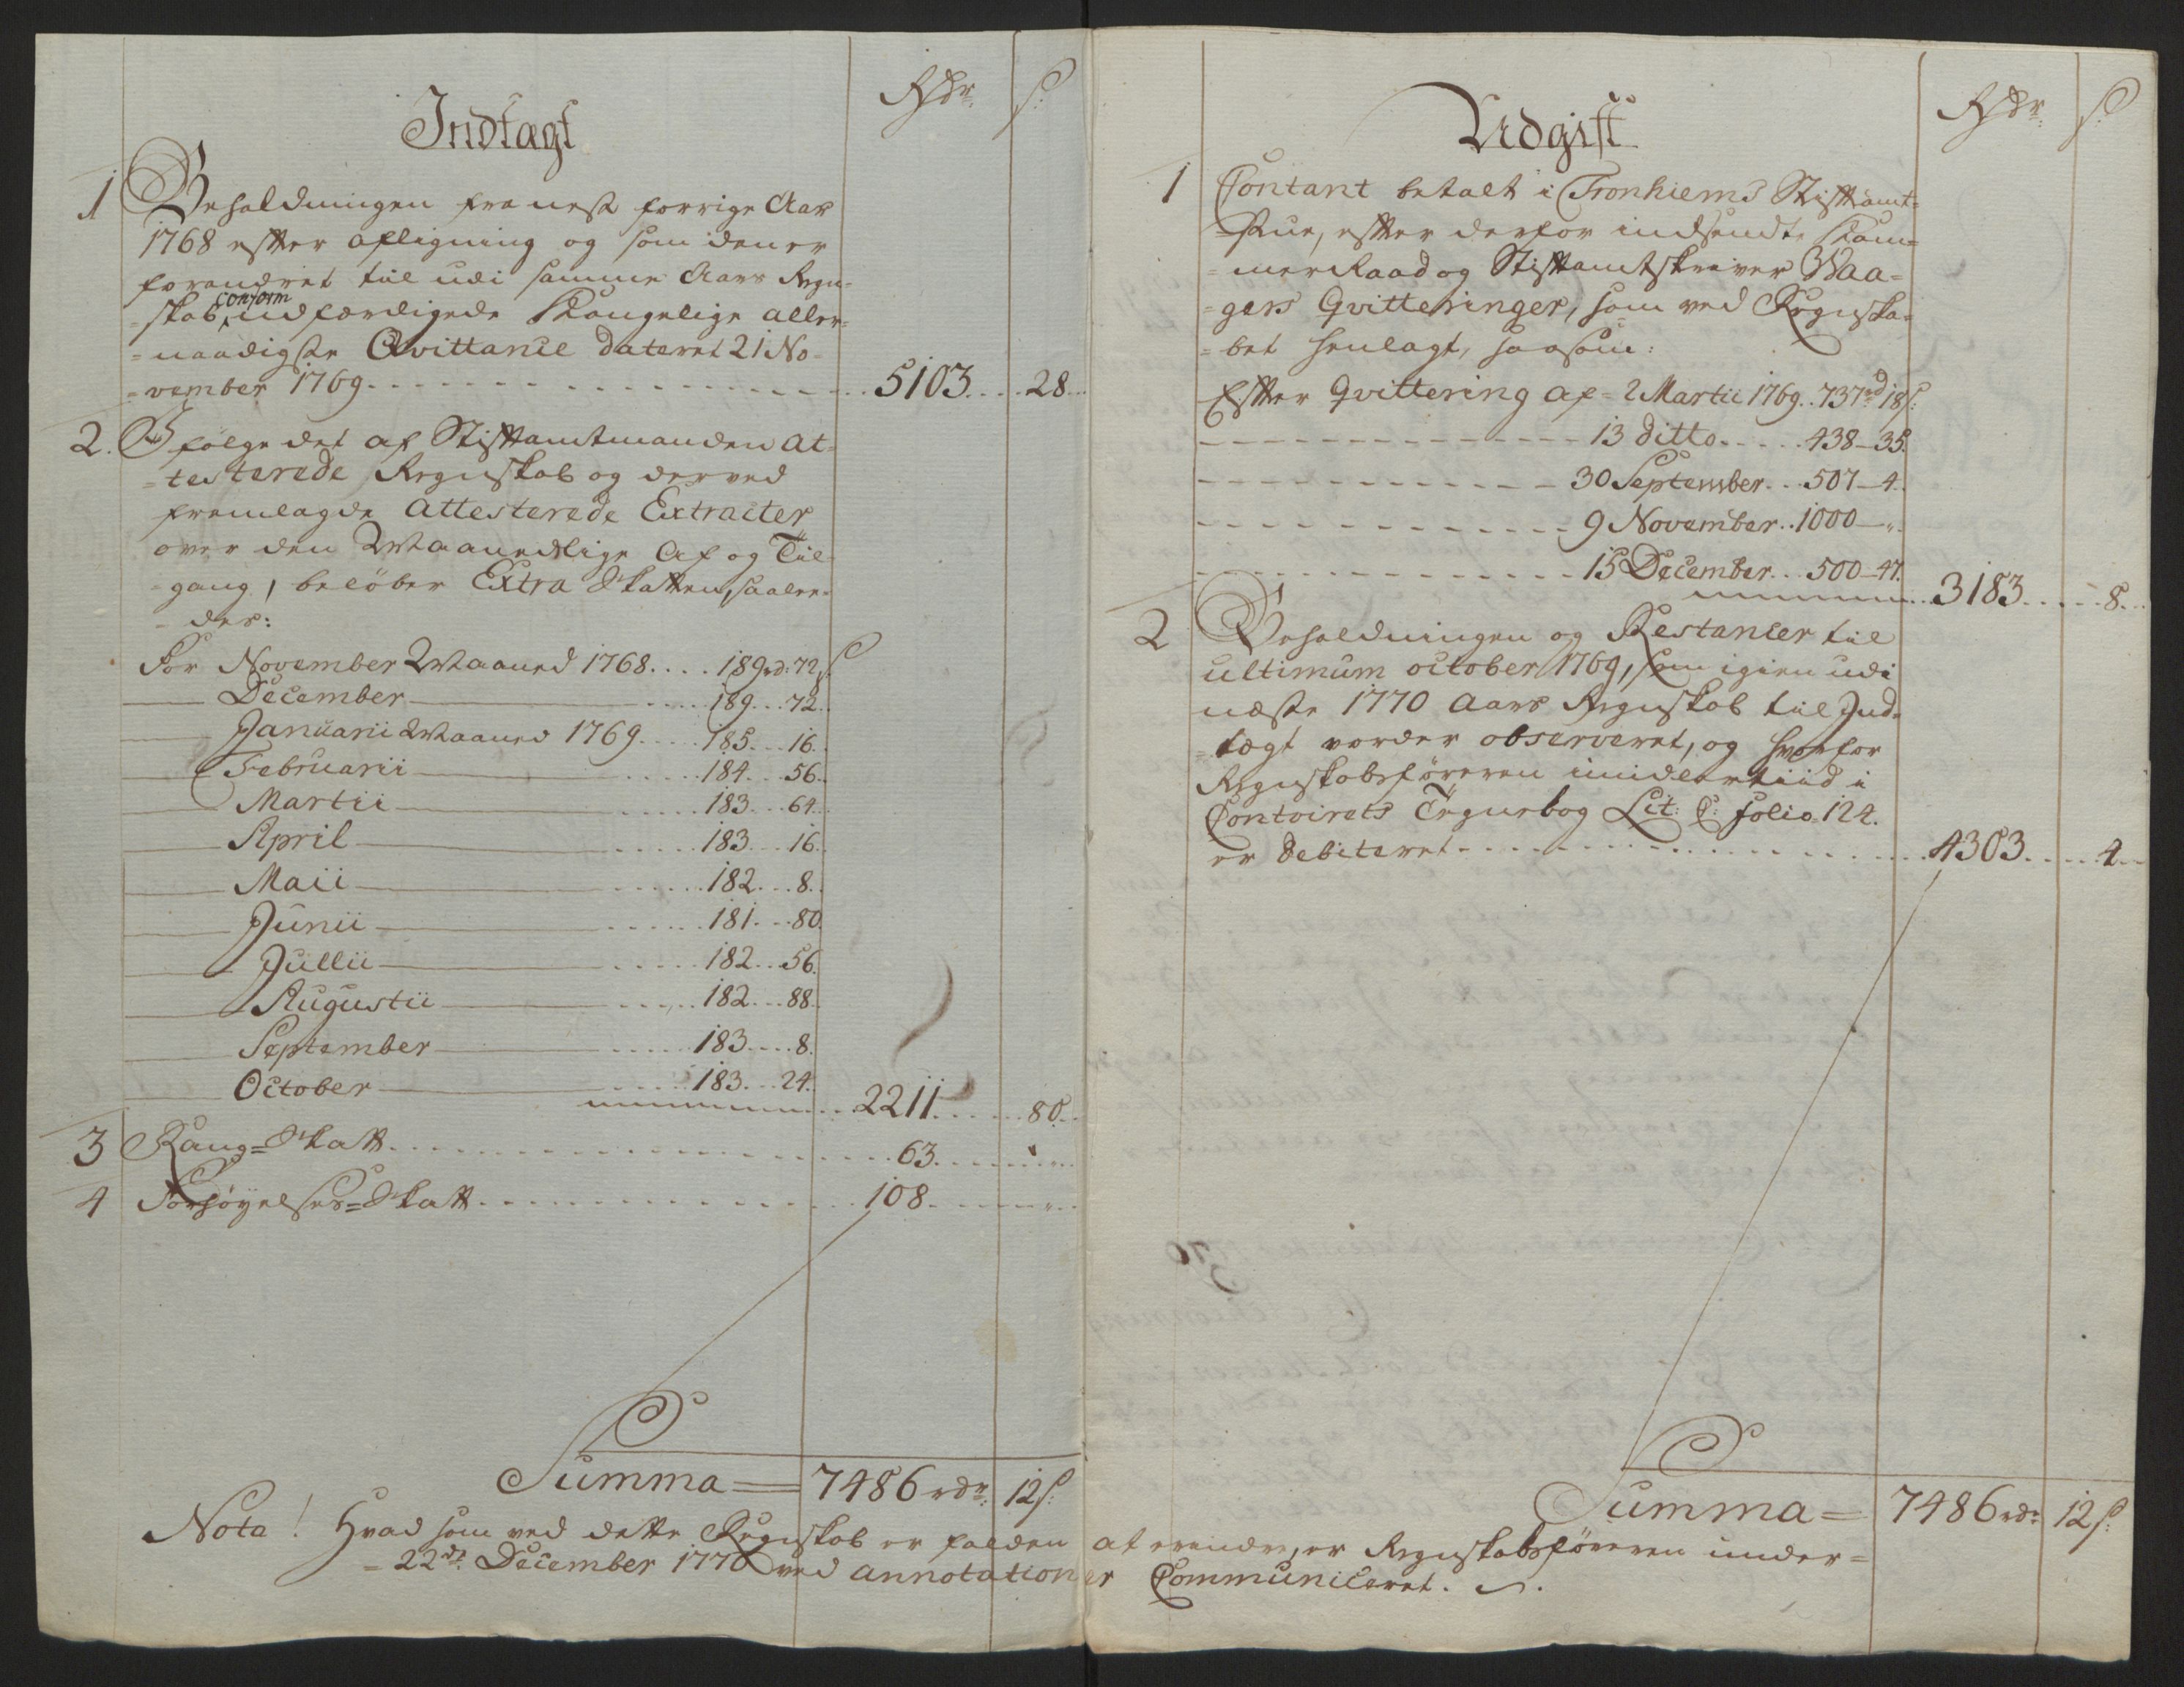 Indtægt
Rdr. ß.
1 Beholdningen fra nest forrige Aar
1768 efter afligning og som den er
forandret til udi samme Aars Regn-
=skab, conform udfærdigede Kongelige aller-
=naadigste Qvittance dateret 21 No-
=vember 1769 5103 28
2. I følge det af Stiftamtmanden At-
=testerede Regnskab og derved
fremlagde Attesterede Extracter
over den Maanedlige Af og Til-
gang, beløber Extra Skatten, saale-
=des:
For November Maaned 1768 189 rd: 72 ß
December 189 72
Januarii Maaned 1769 185 16
Februarii 184 56
Martii 183 64
April 183 16
Maii 182 8
Junii 181 80
Jullii 182 56
Augustii 182 88
September 183 8
October 183 24 2211 80
3 Rang=Skatt 63 "
4 Forhøyelses=Skatt 108 "
Summa = 7486 rdr: 12 ß:
Udgift
Rdr. ß.
1 Contant betalt i Tronhiems Stiftamt-
=stue, efter derfor indsendte Kam-
=merRaad og Stiftamtskriver Waa-
=gers Qvitteringer, som ved Regnska-
=bet henlagt, saasom:
Efter Qvittering af 2 Martii 1769 737 rd 18 ß:
13 ditto 438 – 35.
30 September 507 – 4.
9 November 1000 – "
15 December 500 – 47. 3183 8
2 Beholdningen og Restancer til
ultimum october 1769, som igien udi
næste 1770 Aars Regnskab til Ind-
=tægt vorder observeret, og hvorfor
Regnskabsføreren imidlertiid i
Contoirets Tegnebog Lit: C: folio 124.
er debiteret 4303 4
Summa = 7486 rdr 12 ß:
Nota! Hvad som ved dette Regnskab er falden at erindre, er Regnskabsføreren under-
=22de December 1770 ved annotationer Communiceret.